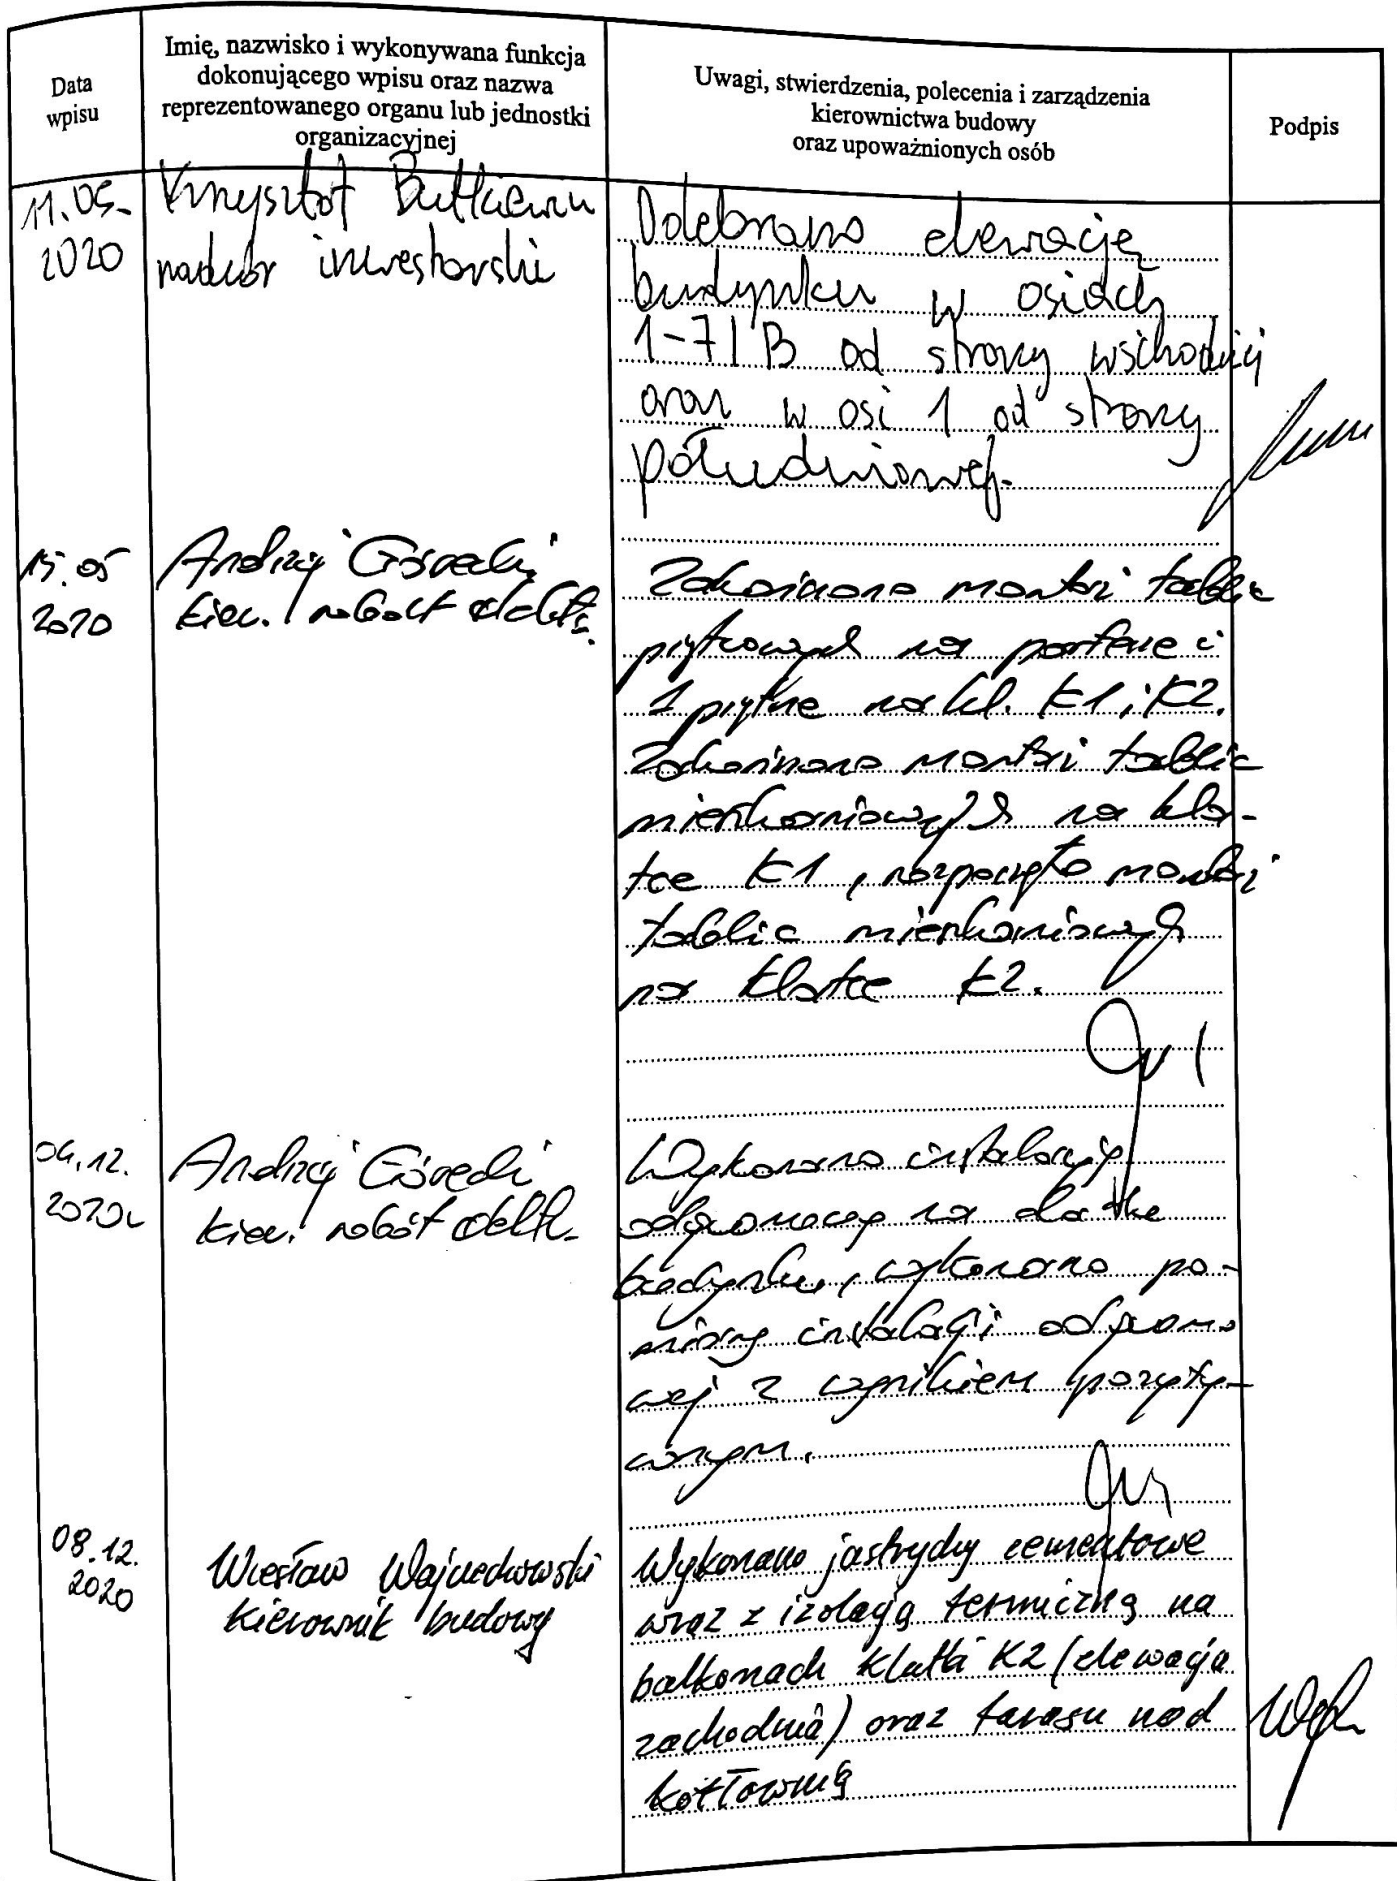 Data
wpisu
Imię, nazwisko i wykonywana funkcja
dokonującego wpisu oraz nazwa
reprezentowanego organu lub jednostki
organizacyjnej
Uwagi, stwierdzenia, polecenia i zarządzenia
kierownictwa budowy
oraz upoważnionych osób
Podpis
11.05.
2020
Krzysztof Butkiewicz
nadzór inwestorski
Odebrano elewację
budynku w osiach
1-7/B od strony wschodniej
oraz w osi 1 od strony
południowej.
15.05
2020
Andrzej Górecki
kier. robót elektr.
Zakończono montaż tablic
piętrowych na parterze i
1 piętrze na kl. K1 i K2.
Zakończono montaż tablic
mieszkaniowych na kla-
tce K1, rozpoczęto montaż
tablic mieszkaniowych
na klatce K2.
04.12.
2020r
Andrzej Górecki
kier. robót elektr.
Wykonano instalację
odgromową na dachu
budynku, wykonano po-
miary instalacji odgromo
wej z wynikiem pozyty-
wnym.
08.12.
2020
Wiesław Wojciechowski
Kierownik budowy
Wykonano jastrychy cementowe
wraz z izolacją termiczną na
balkonach klatki K2 (elewacja
zachodnia) oraz tarasu nad
kotłownią